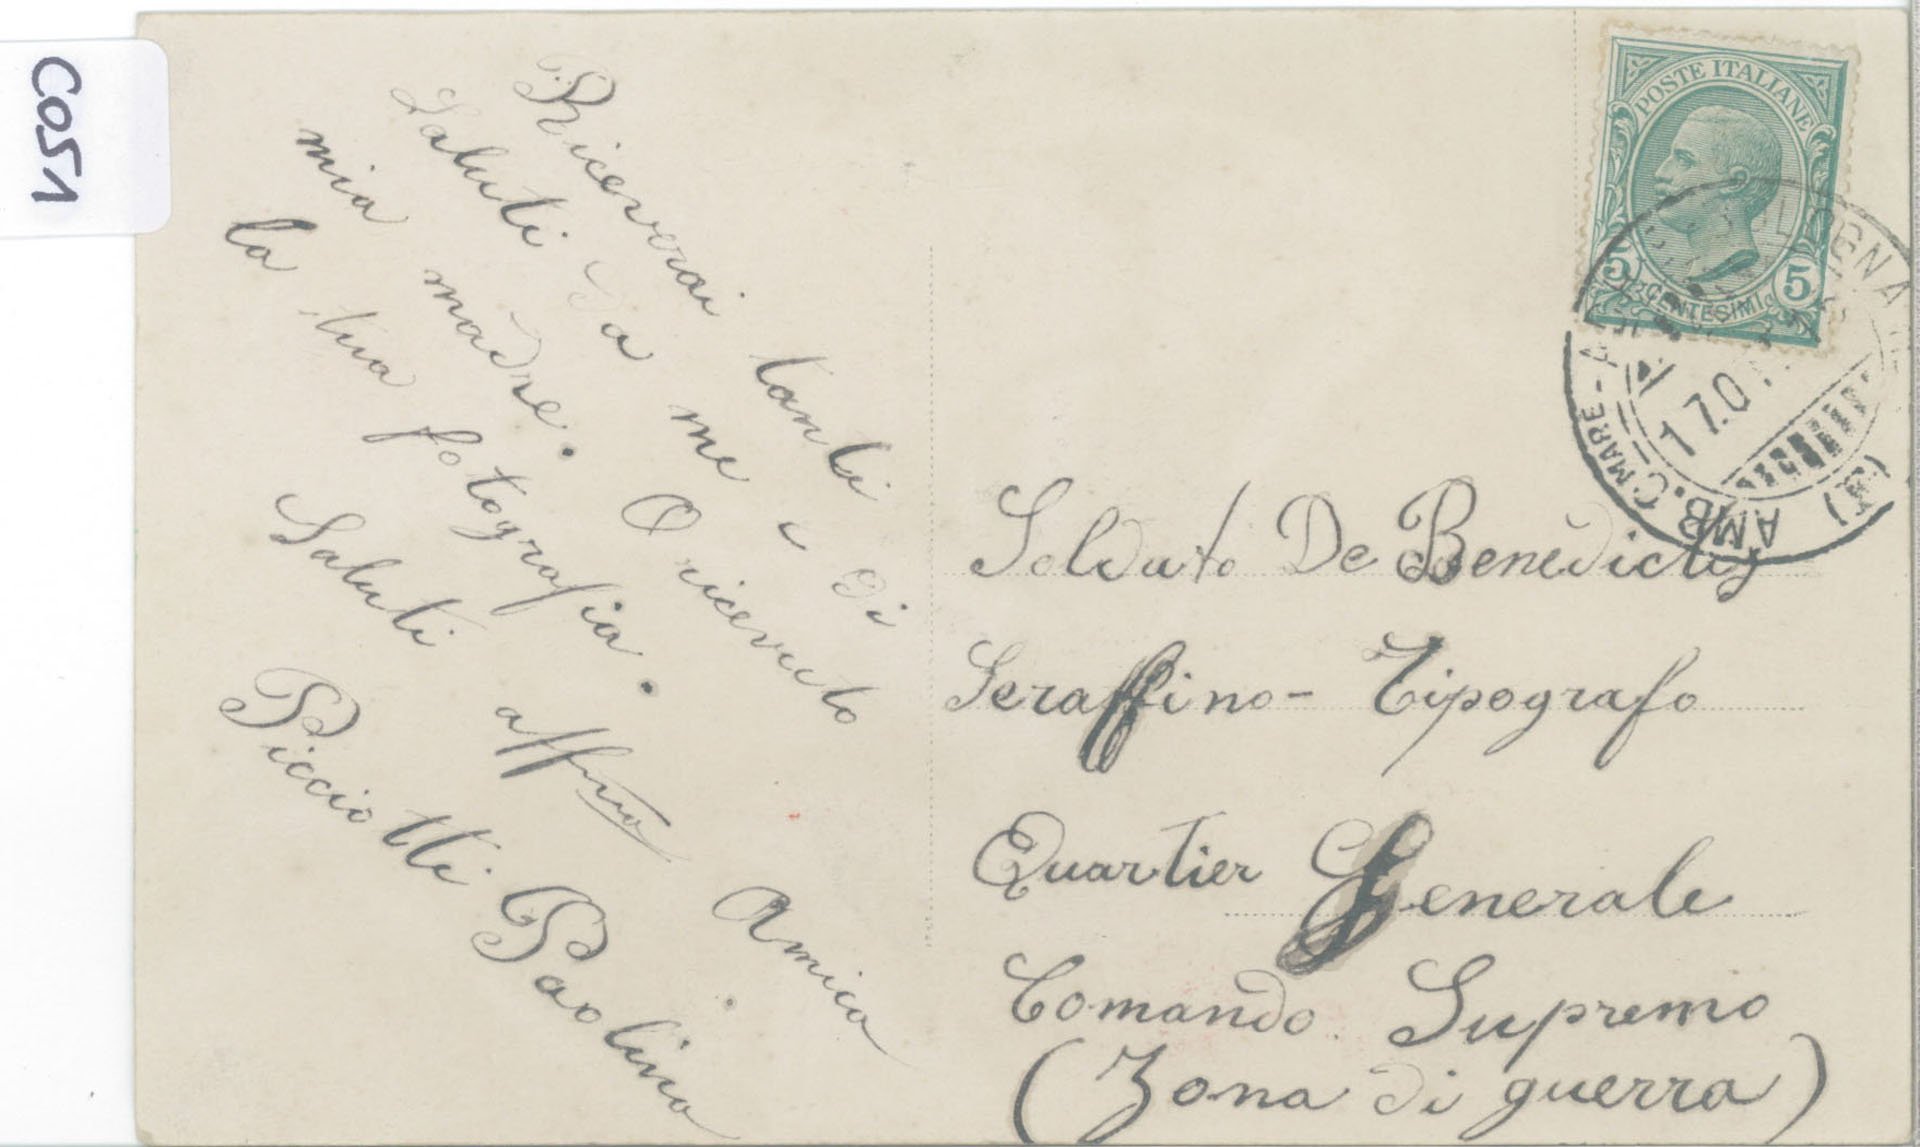 COS1
Riceverai tanti
Saluti da me e di
mia madre. O ricevuto
la tua fotografia.
Saluti affma Amica
Picciotti Paolina
POSTE ITALIANE
5 CENTESIMI 5
AMB. C. MARE - A
BOLOGNA
17.0
Soldato De Benedictis
Seraffino - Tipografo
Quartier Generale
Comando Supremo
(Zona di guerra)